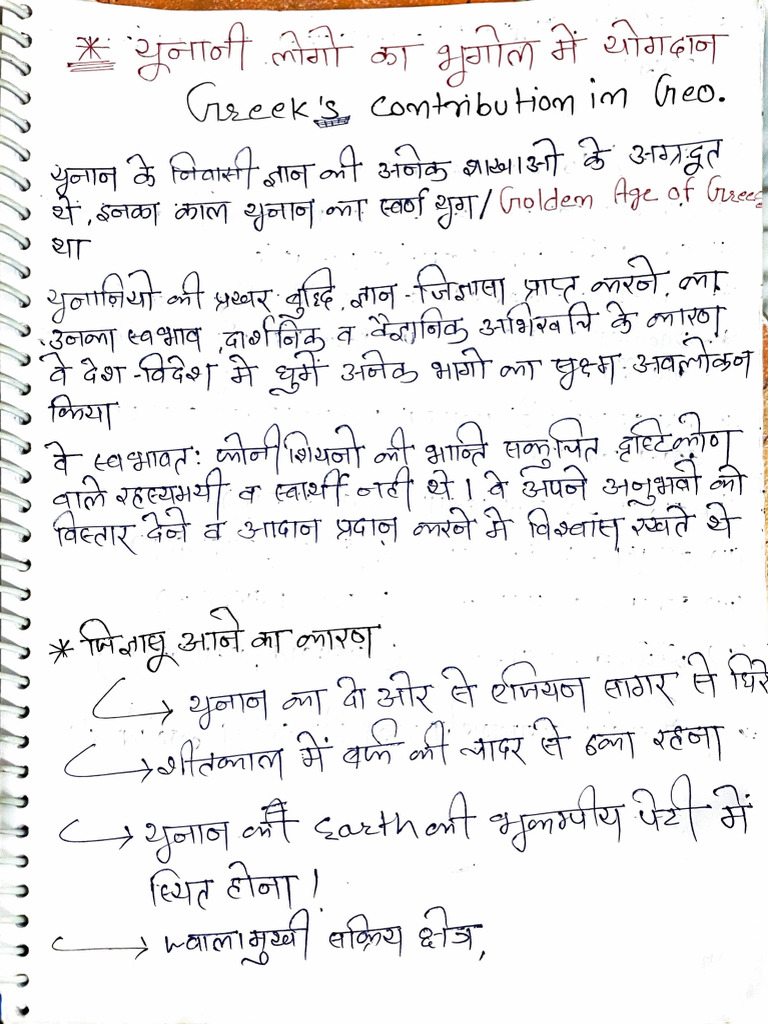 * यूनानी लोगों का भूगोल में योगदान
Greek's contribution in Geo.
यूनान के निवासी ज्ञान की अनेक शाखाओ के अग्रदूत
थे, इनका काल यूनान का स्वर्ण युग/Golden Age of Greec
था
यूनानियो की प्रखर बुद्धि, ज्ञान-जिज्ञासा प्राप्त करने का
उनका स्वभाव, दार्शनिक व वैज्ञानिक अभिरुचि के कारण
वे देश-विदेश मे घुमें अनेक भागो का सूक्ष्म अवलोकन
किया
वे स्वभावत: फोनीशियनो की भान्ति सकुचित दृष्टिकोण
वाले रहस्यमयी व स्वार्थी नही थे। वे अपने अनुभवों को
विस्तार देने व आदान प्रदान करने मे विश्वास रखते थे
* जिज्ञासु आने का कारण
→ यूनान का दो ओर से एजियन सागर से घिरे
→ शीतकाल में बर्फ की चादर से ढका रहना
→ यूनान का Earth की भूकम्पीय पेटी में
स्थित होना।
→ ज्वालामुखी सक्रिय क्षेत्र,